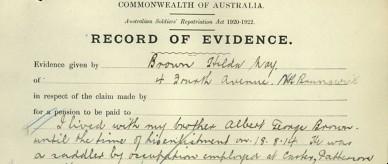 COMMONWEALTH OF AUSTRALIA.
Australian Soldiers' Repatriation Act 1920-1922.
RECORD OF EVIDENCE.
Evidence given by Brown Hilda May
of 4 Fourth Avenue. Nth Brunswick
in respect of the claim made by
for a pension to be paid to
I lived with my brother Albert George Brown
until the time of his enlistment on 18.8.14 He was
a saddler by occupation employed at